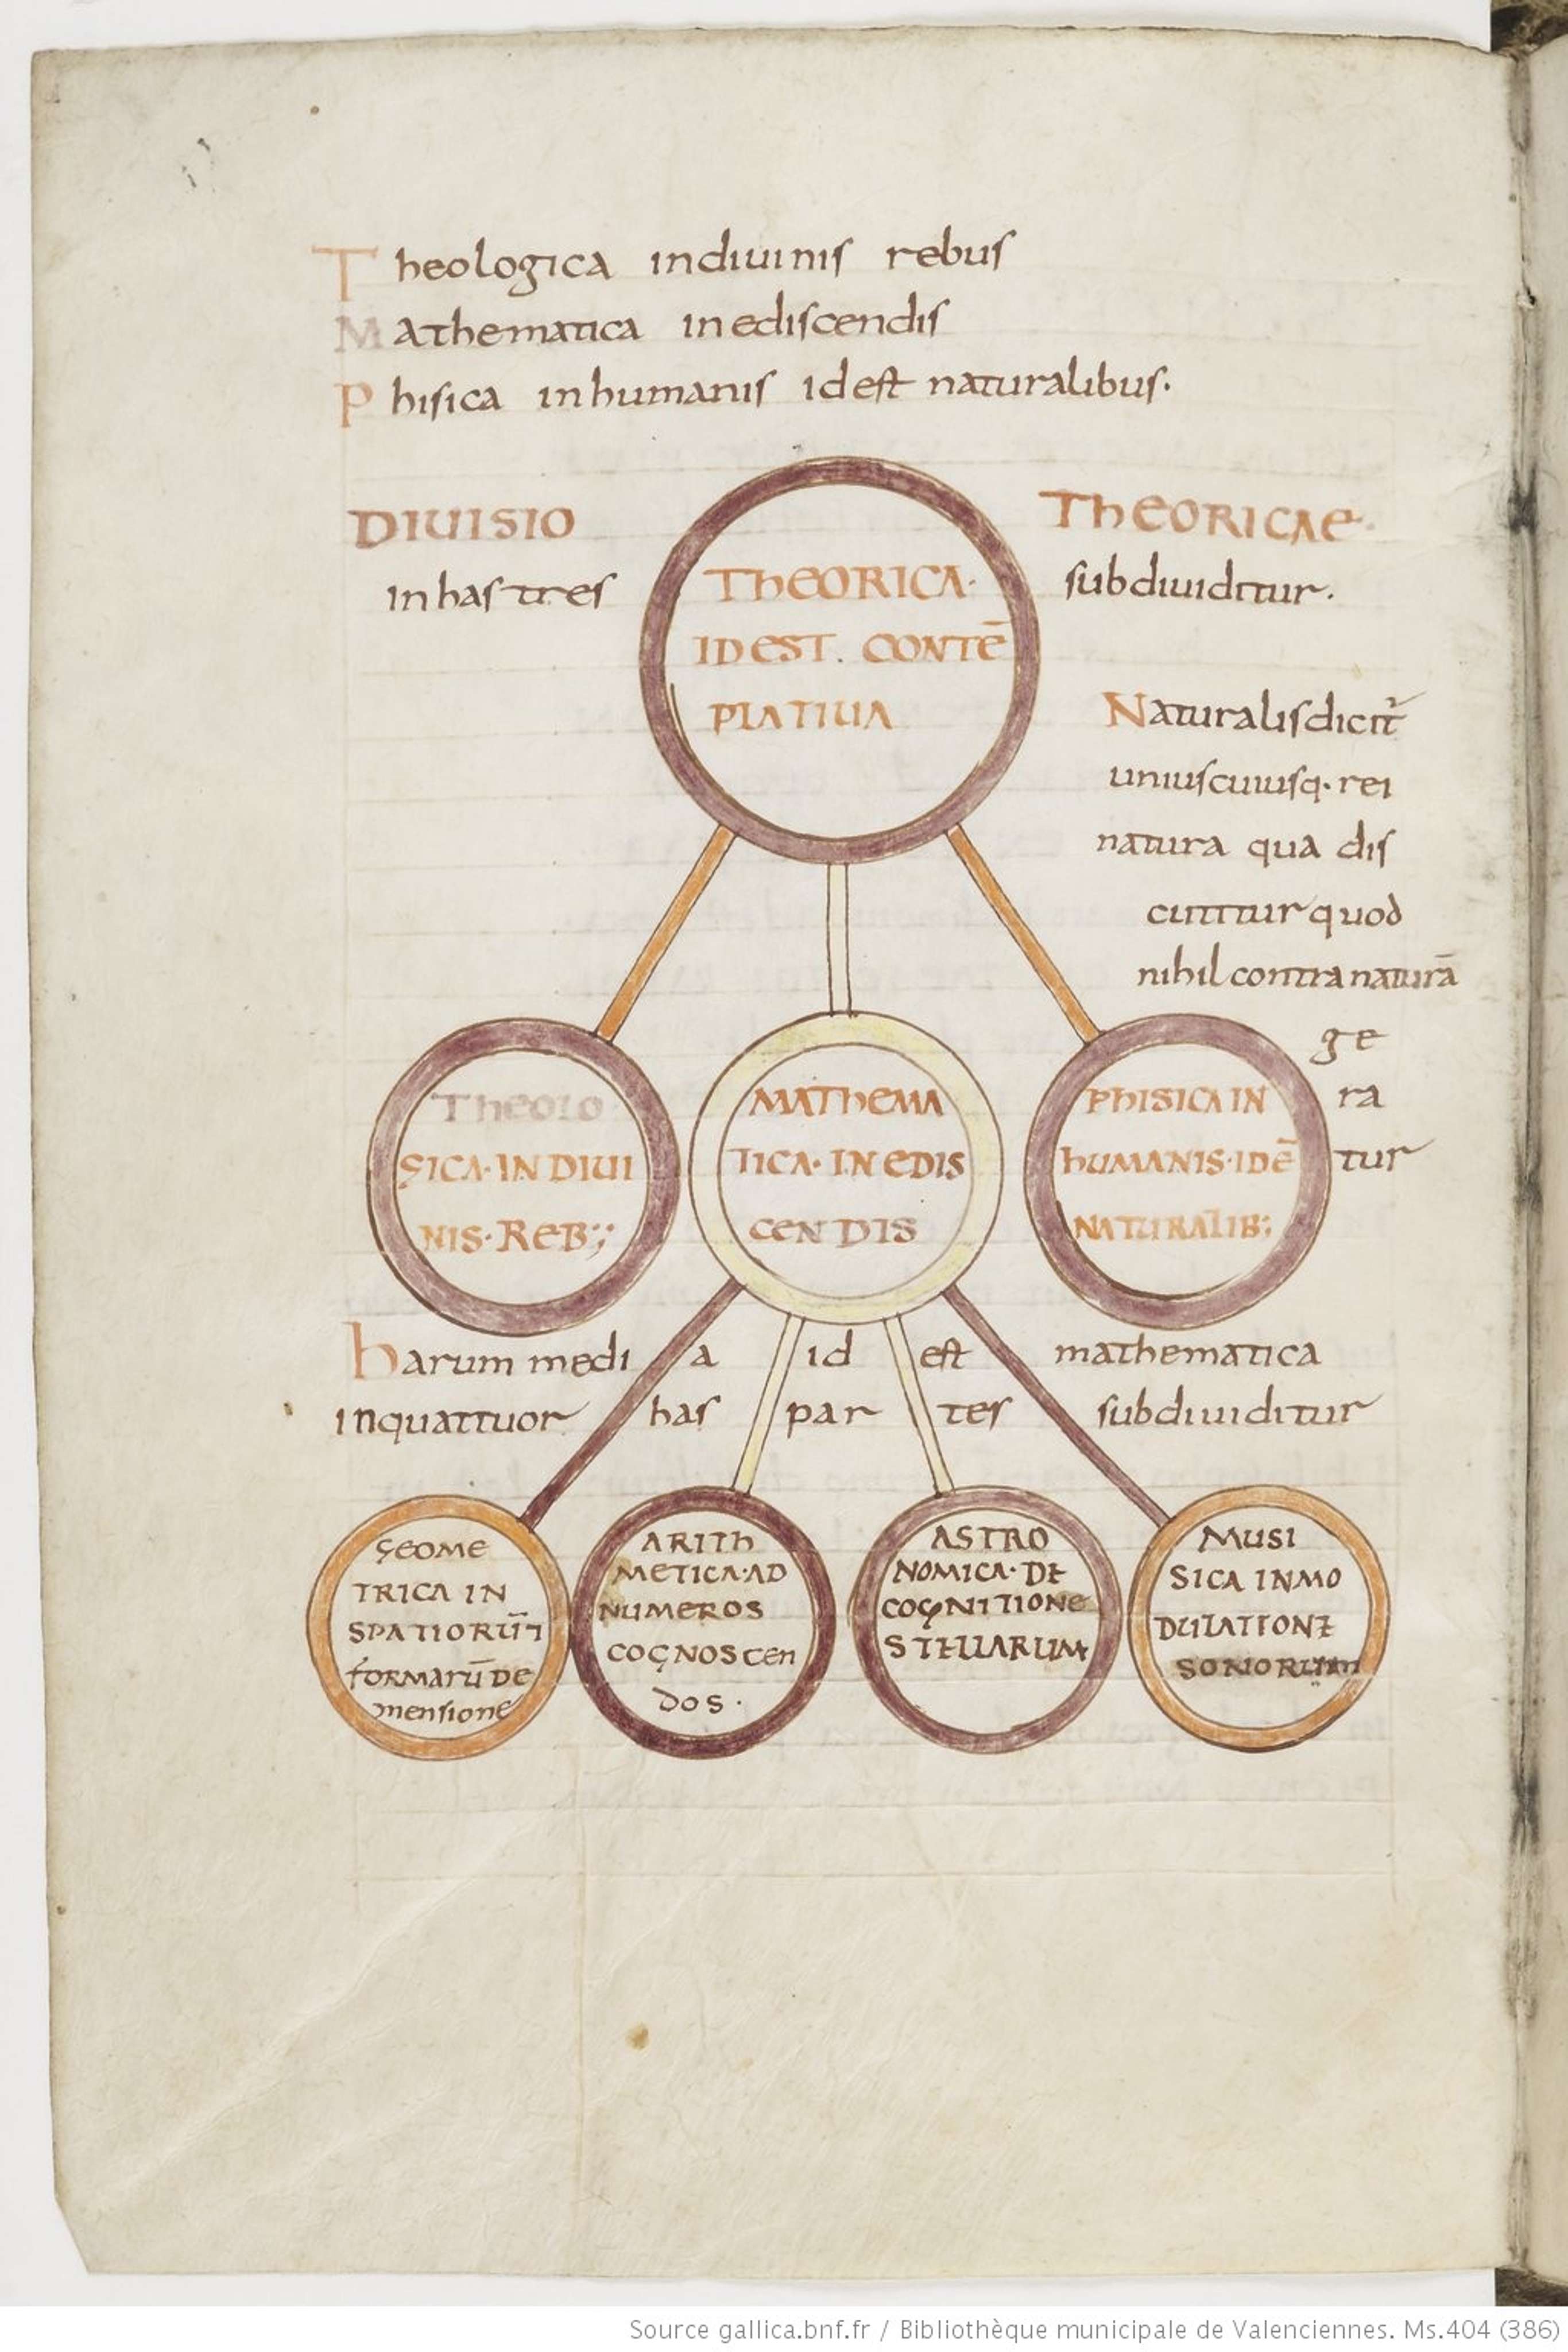 Theologica indiuinis rebus
Mathematica inediscendis
Phisica inhumanis idest naturalibus.
DIUISIO
ThEORICAE.
inhas tres
subdiuiditur.
ThEORICA.
IDEST. CONTĒ
PLATIUA
Naturalis dicit̄
uniuscuiusq. rei
natura qua dis
cutitur quod
nihil contra naturā
ge
ra
tur
TheoLo
GICA. IN DIUI
NIS. REB;;
MAThEMA
TICA. IN EDIS
CENDIS
PhISICA IN
hUMANIS. IDĒ
NATURALIB;
harum medi a id est mathematica
inquattuor has par tes subdiuiditur
GEOME
TRICA IN
SPATIORŪ
formarū DE
mensione
ARITh
METICA. AD
NUMEROS
COGNOScen
DOS.
ASTRO
NOMICA. DE
COGNITIONE
STELLARUM
MUSI
SICA INMO
DULATIONE
SONORUM
Source gallica.bnf.fr / Bibliothèque municipale de Valenciennes. Ms.404 (386)